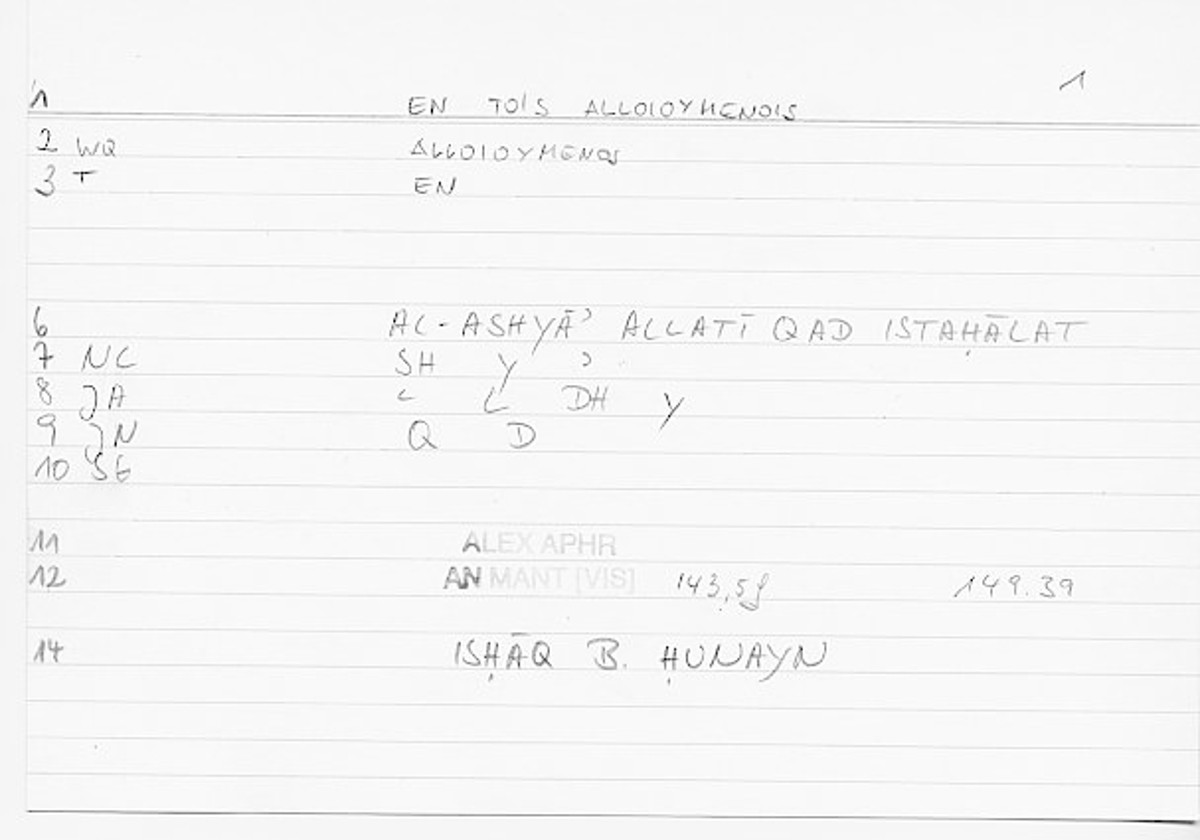 1
1 EN TOIS ALLOIOYMENOIS
2 WQ ALLOIOYMENOS
3 T EN
6 AL-ASHYĀʾ ALLATĪ QAD ISTAḤĀLAT
7 NC SH Y ʾ
8 JA ʿ L DH Y
9 JN Q D
10
11 ALEX APHR
12 AN MANT [VIS] 143,5f 149.39
14 ISḤĀQ B. ḤUNAYN